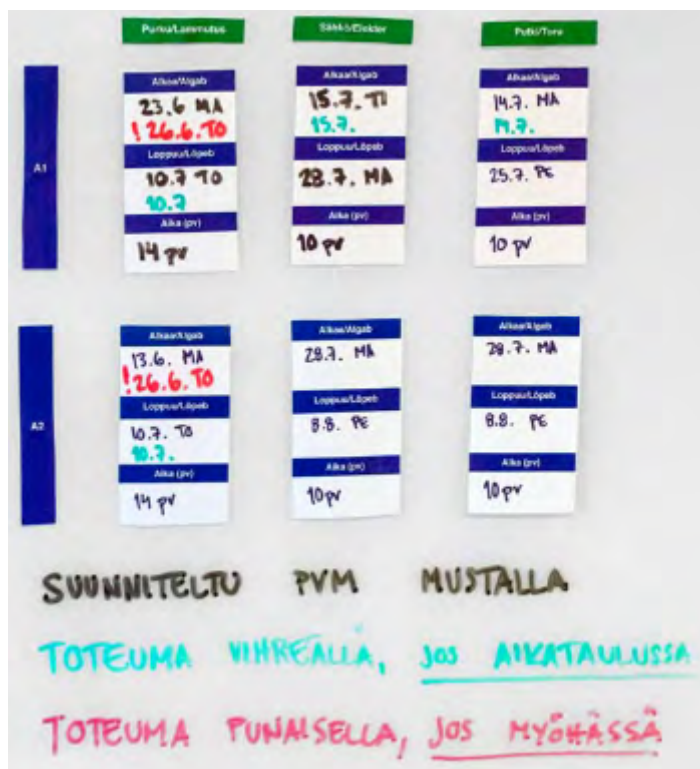 Purku/Lammutus
Sähkö/Elekter
Putki/Toru
A1
Alkaa/Algab
23.6 MA
! 26.6. TO
Loppuu/Lõpeb
10.7 TO
10.7
Aika (pv)
14 pv
Alkaa/Algab
15.7. TI
15.7.
Loppuu/Lõpeb
28.7. MA
Aika (pv)
10 pv
Alkaa/Algab
14.7. MA
14.7.
Loppuu/Lõpeb
25.7. PE
Aika (pv)
10 pv
A2
Alkaa/Algab
13.6. MA
! 26.6. TO
Loppuu/Lõpeb
10.7. TO
10.7.
Aika (pv)
14 pv
Alkaa/Algab
28.7. MA
Loppuu/Lõpeb
8.8. PE
Aika (pv)
10 pv
Alkaa/Algab
28.7. MA
Loppuu/Lõpeb
8.8. PE
Aika (pv)
10 pv
SUUNNITELTU PVM MUSTALLA
TOTEUMA VIHREÄLLÄ, JOS AIKATAULUSSA
TOTEUMA PUNAISELLA, JOS MYÖHÄSSÄ